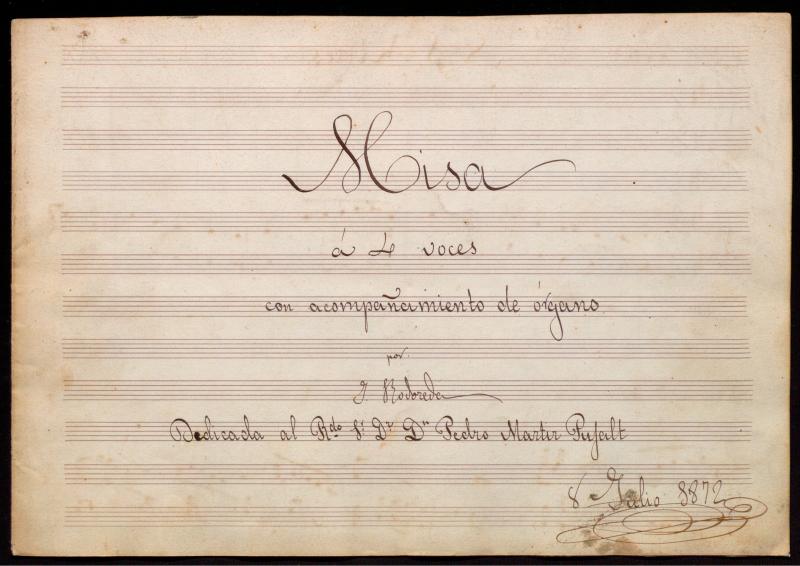 Misa
á 4 voces
con acompañamiento de órgano
por
J. Rodoreda
Dedicada al Rdo Sr Dr Dn Pedro Martir Pujalt
8 Julio 1872